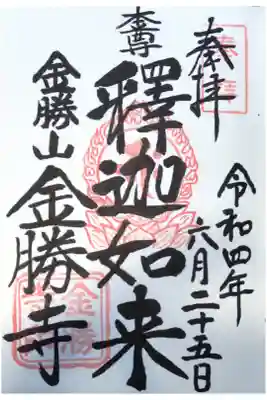 奉拝
令和四年
六月二十五日
本尊
釋迦如来
金勝山
金勝寺
金勝
寺